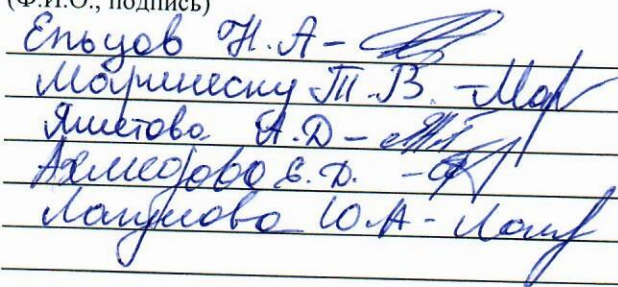 (Ф.И.О., подпись)
Епьцов Н.А -
Маринеску Т.В. - Мар
Яшетова А.Д -
Ахмедова Е.Д. -
Лапунова Ю.А -